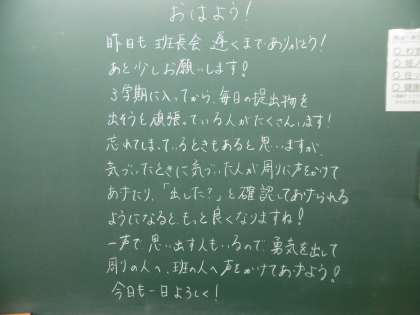 おはよう!
昨日も班長会 遅くまでありがとう!
あと少しお願いします!
3学期に入ってから、毎日の提出物を
出そうと頑張っている人がたくさんいます!
忘れてしまっているときもあると思いますが、
気づいたときに気づいた人が周りに声をかけて
あげたり、「出した?」と確認してあげられる
ようになると、もっと良くなりますね!
一声で思い出す人もいるので、勇気を出して
周りの人へ、班の人へ声をかけてあげよう!
今日も一日よろしく!